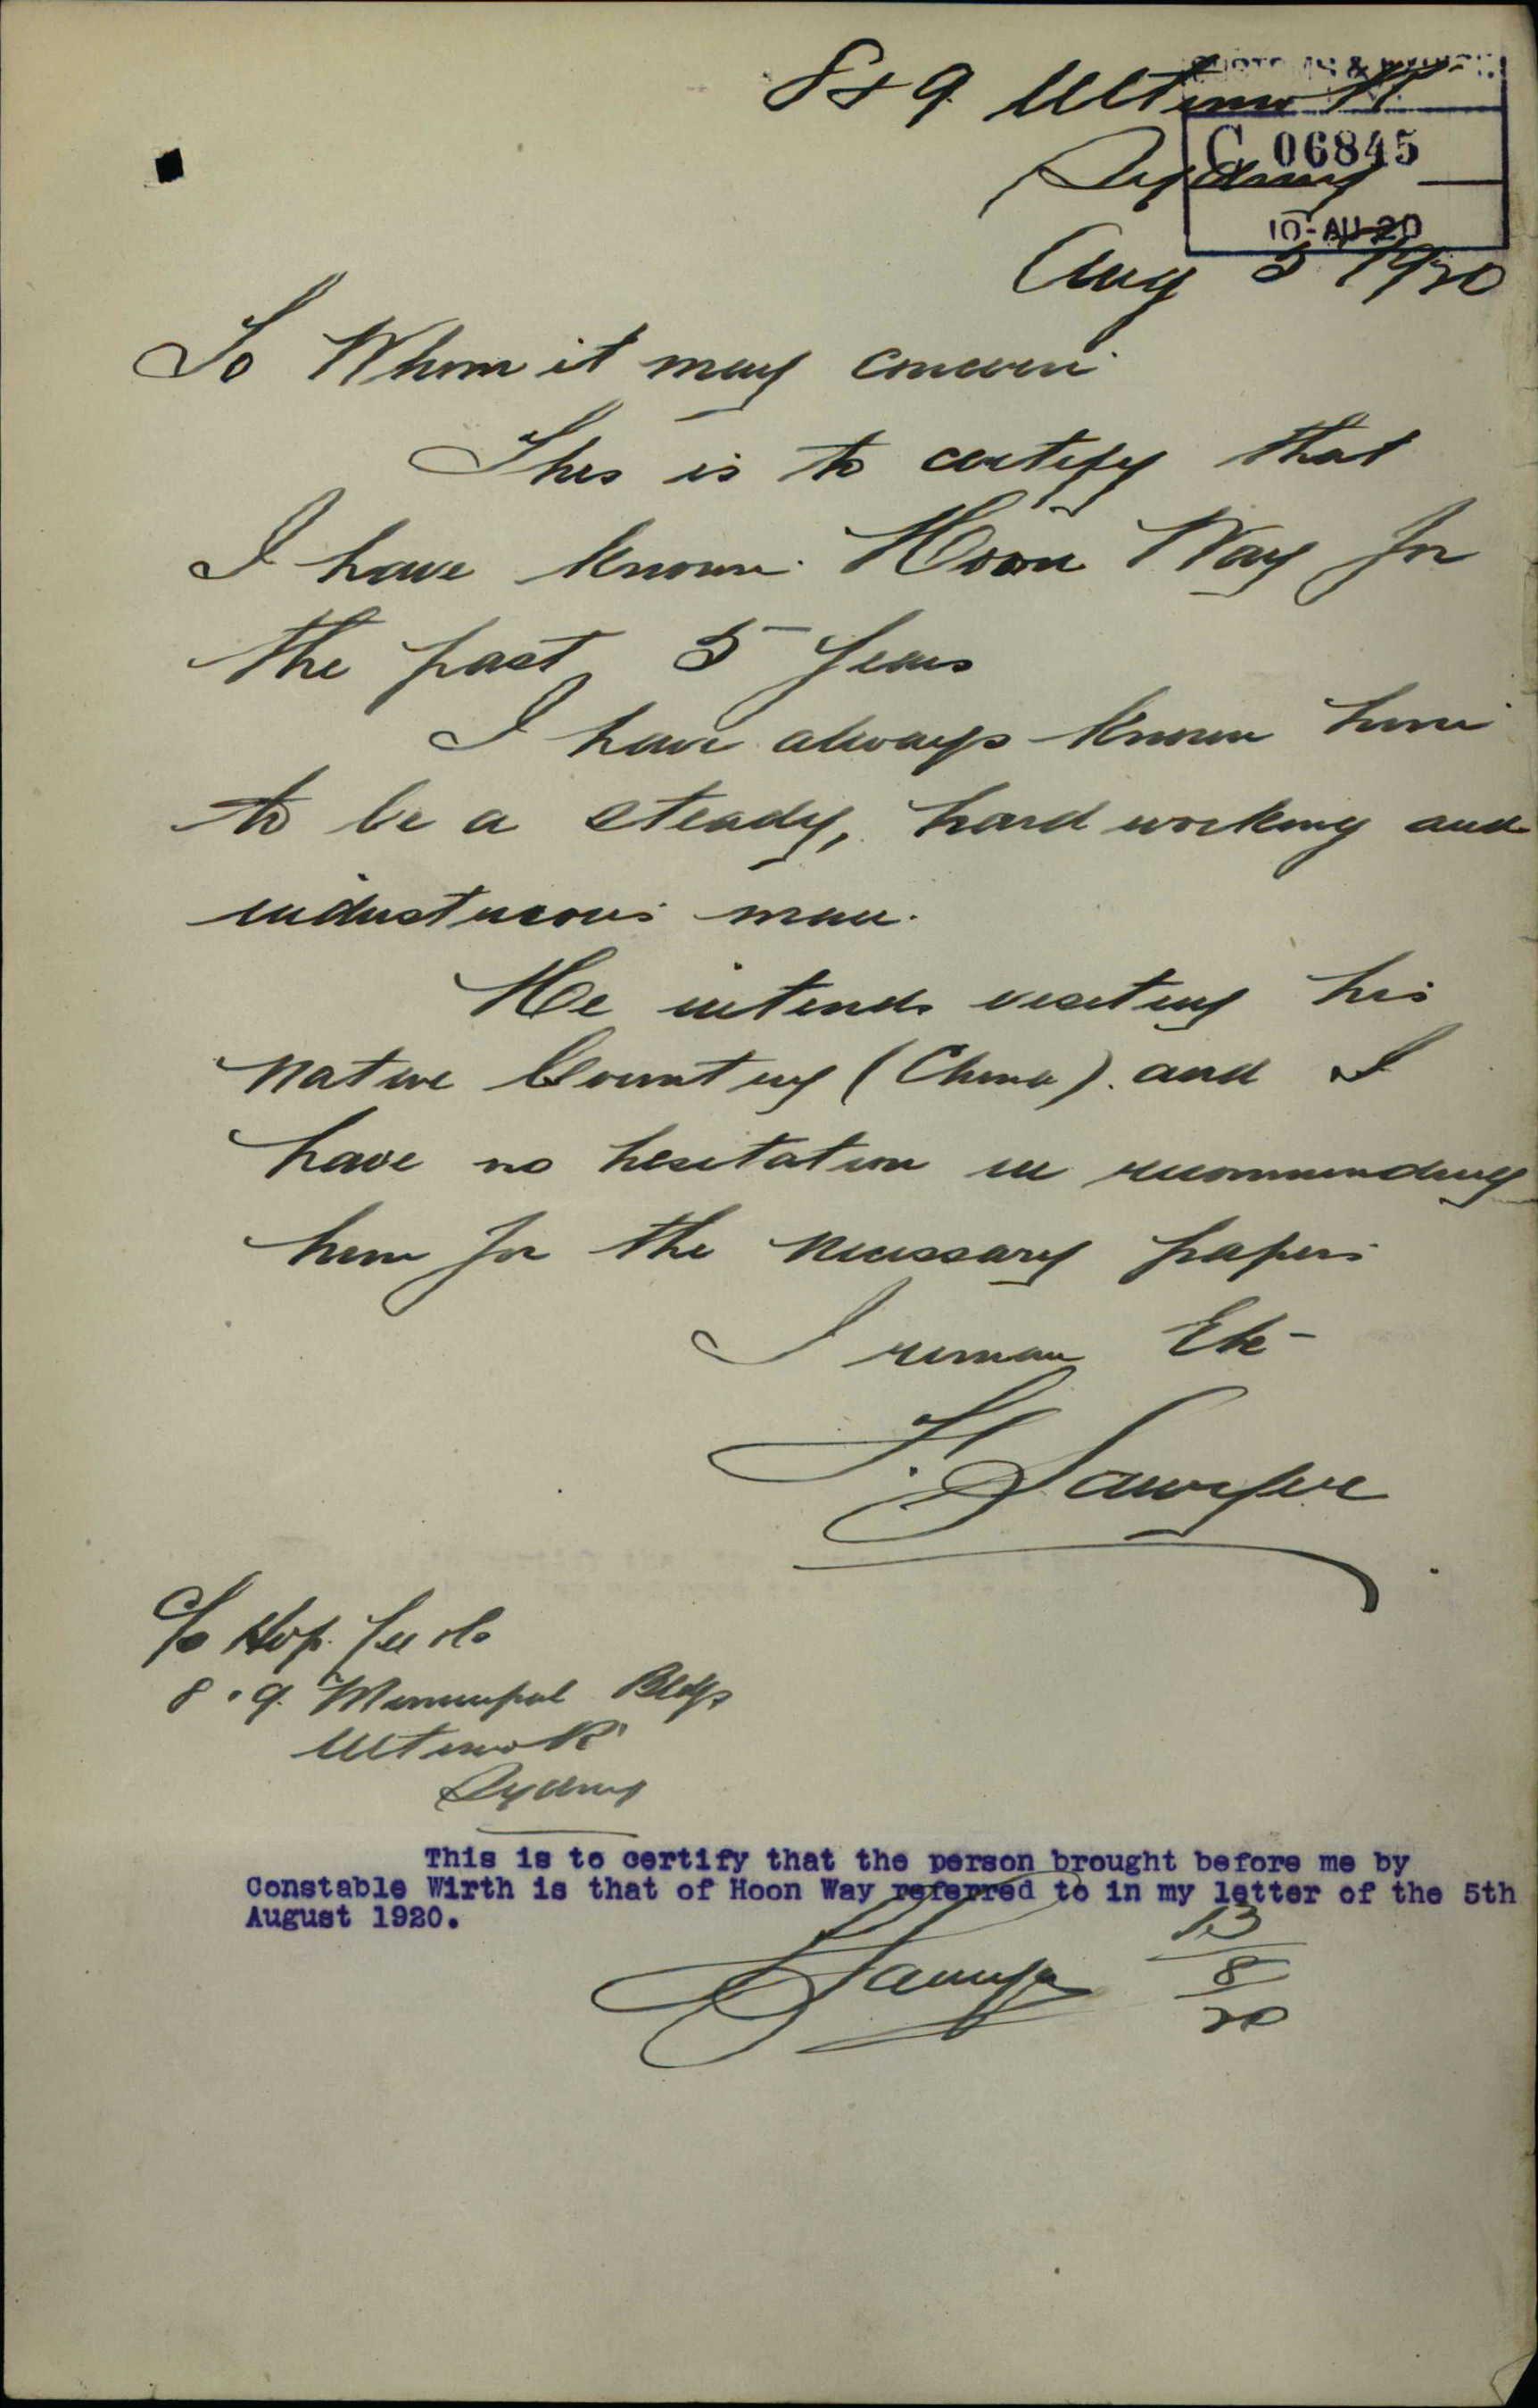 8 & 9 Ultimo Rd
CUSTOMS &
C 06845
Sydney
10-AU-20
Aug 5th 1920
To Whom it may concern
This is to certify that
I have known Hoon Way for
the past 5 years
I have always known him
to be a steady, hard working and
industrious man.
He intends visiting his
native Country (China). and I
have no hesitation in recommending
him for the necessary papers
I remain Etc
F. Sawyer
C/o Hop Lee & Co
8 & 9 Municipal Bldgs
Ultimo Rd
Sydney
This is to certify that the person brought before me by
Constable Wirth is that of Hoon Way referred to in my letter of the 5th
August 1920.
F Sawyer
13
8
20